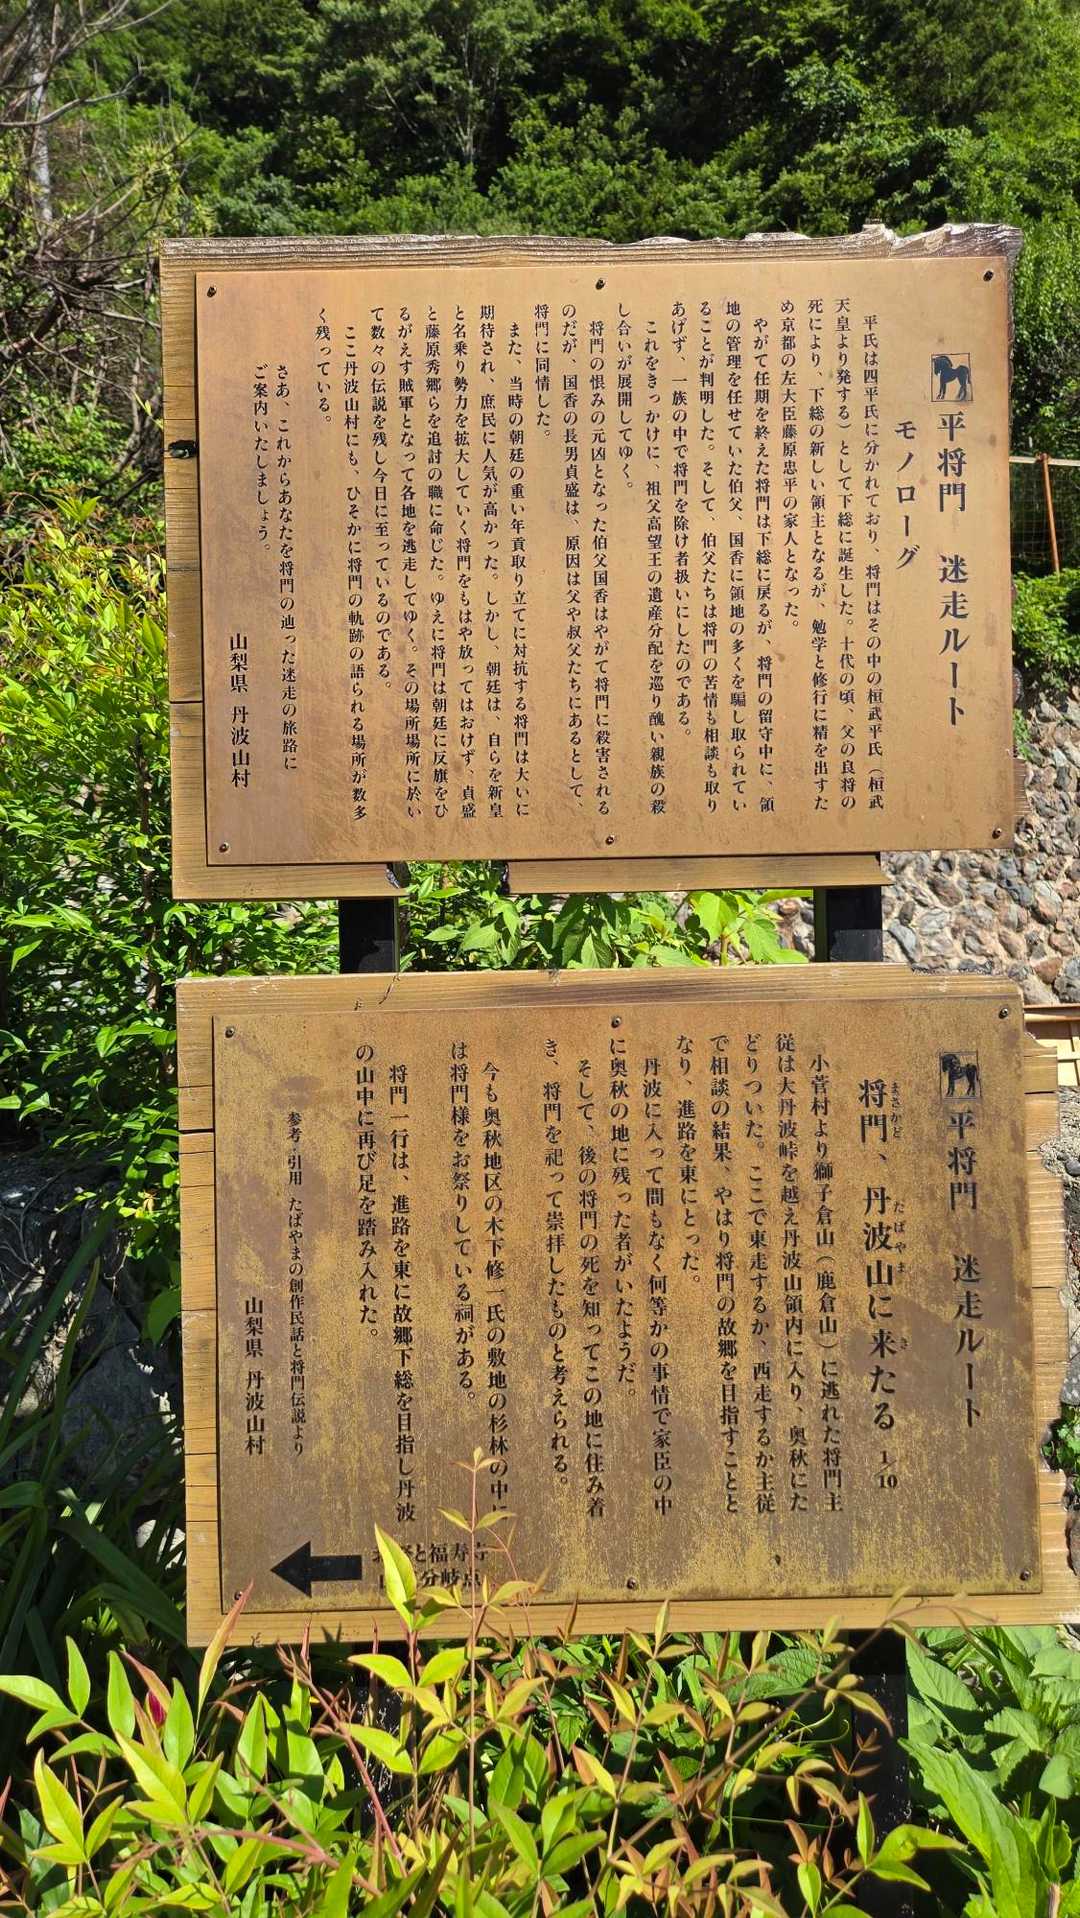 平将門　迷走ルート
モノローグ
平氏は四平氏に分かれており、将門はその中の桓武平氏（桓武
天皇より発する）として下総に誕生した。十代の頃、父の良将の
死により、下総の新しい領主となるが、勉学と修行に精を出すた
め京都の左大臣藤原忠平の家人となった。
やがて任期を終えた将門は下総に戻るが、将門の留守中に、領
地の管理を任せていた伯父、国香に領地の多くを騙し取られてい
ることが判明した。そして、伯父たちは将門の苦情も相談も取り
あげず、一族の中で将門を除け者扱いにしたのである。
これをきっかけに、祖父高望王の遺産分配を巡り醜い親族の殺
し合いが展開してゆく。
将門の恨みの元凶となった伯父国香はやがて将門に殺害される
のだが、国香の長男貞盛は、原因は父や叔父たちにあるとして、
将門に同情した。
また、当時の朝廷の重い年貢取り立てに対抗する将門は大いに
期待され、庶民に人気が高かった。しかし、朝廷は、自らを新皇
と名乗り勢力を拡大していく将門をもはや放ってはおけず、貞盛
と藤原秀郷らを追討の職に命じた。ゆえに将門は朝廷に反旗をひ
るがえす賊軍となって各地を逃走してゆく。その場所場所に於い
て数々の伝説を残し今日に至っているのである。
ここ丹波山村にも、ひそかに将門の軌跡の語られる場所が数多
く残っている。
さあ、これからあなたを将門の辿った迷走の旅路に
ご案内いたしましょう。
山梨県 丹波山村
平将門　迷走ルート
将門、丹波山に来たる 1/10
まさかど たばやま き
小菅村より獅子倉山（鹿倉山）に逃れた将門主
従は大丹波峠を越え丹波山領内に入り、奥秋にた
どりついた。ここで東走するか、西走するか主従
で相談の結果、やはり将門の故郷を目指すことと
なり、進路を東にとった。
丹波に入って間もなく何等かの事情で家臣の中
に奥秋の地に残った者がいたようだ。
そして、後の将門の死を知ってこの地に住み着
き、将門を祀って崇拝したものと考えられる。
今も奥秋地区の木下修一氏の敷地の杉林の中に
は将門様をお祭りしている祠がある。
将門一行は、進路を東に故郷下総を目指し丹波
の山中に再び足を踏み入れた。
参考・引用 たばやまの創作民話と将門伝説より
山梨県 丹波山村
と福寿寺
分岐点